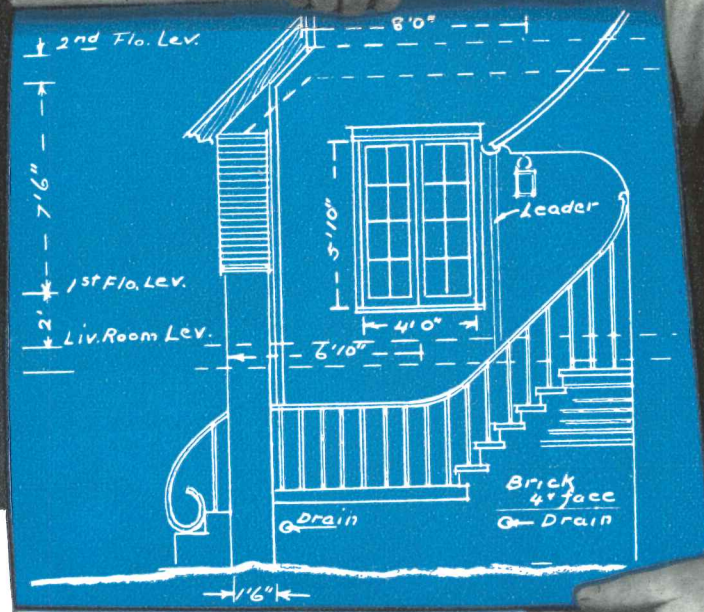 8'0"
2nd Flo. Lev.
7'6"
5'10"
Leader
1st Flo. Lev.
2'
Liv. Room Lev.
4'0"
6'10"
Brick
4" face
Drain
Drain
1'6"